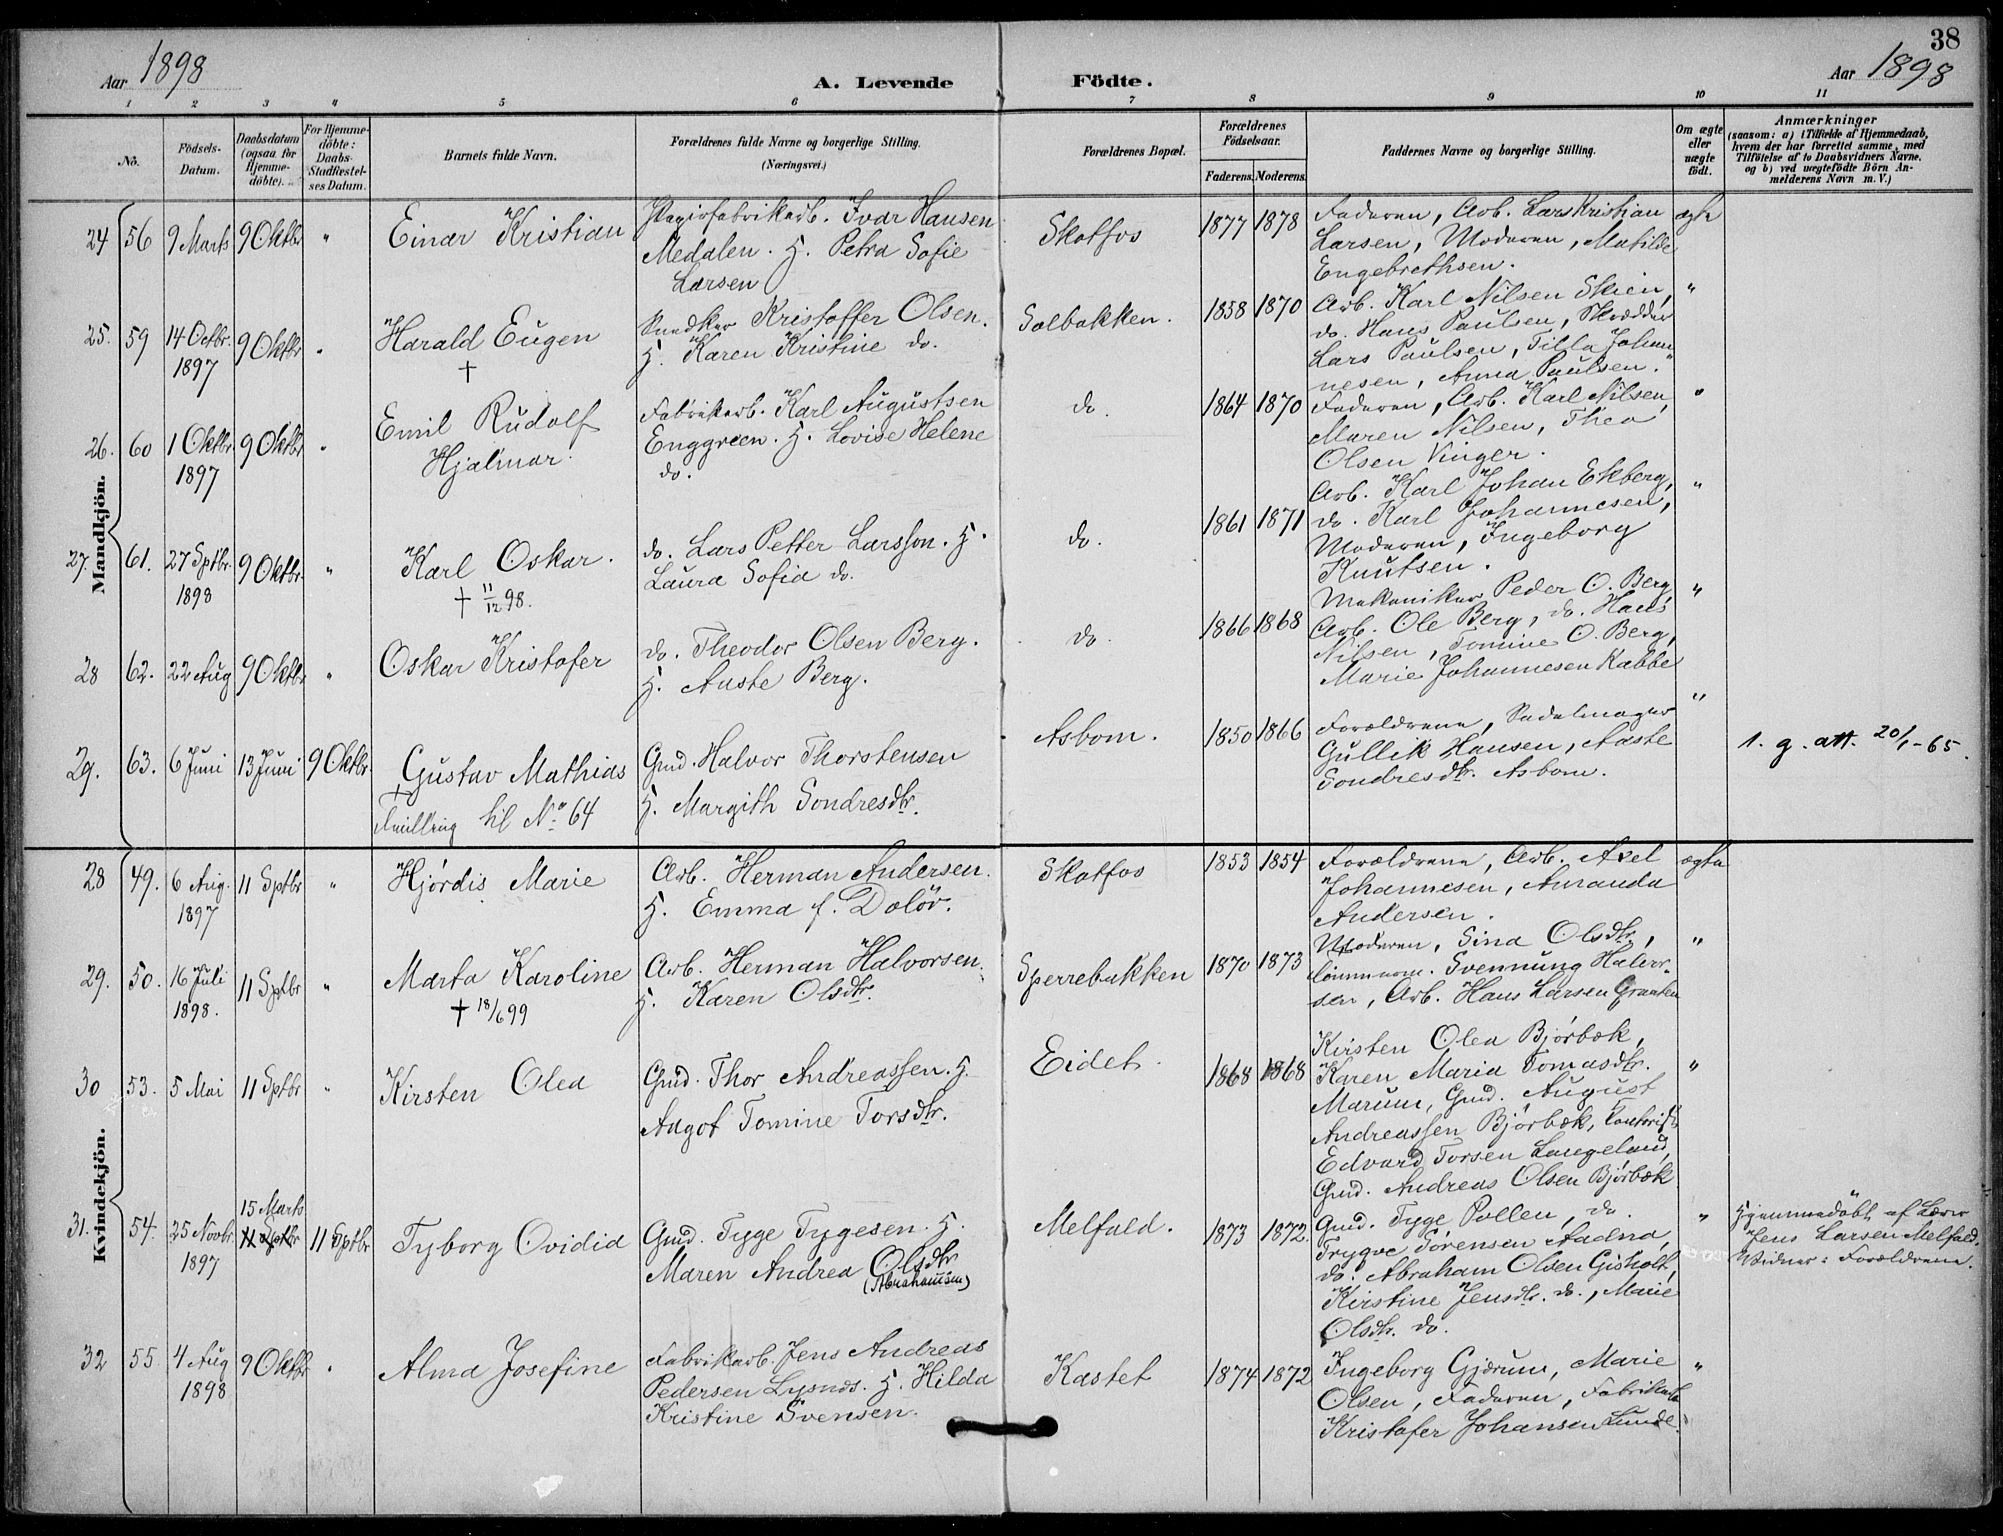 38
Aar 1898
A. Levende Födte.
Aar 1898
1 2 3 4 5 6 7 8 9 10 11
No.
Födsels-
Datum.
Daabsdatum
(ogsaa for
Hjemme-
döbte).
For Hjemme-
döbte:
Daabs-
Stadfæstel-
ses Datum.
Barnets fulde Navn.
Forældrenes fulde Navne og borgerlige Stilling.
(Næringsvei.)
Forældrenes Bopæl.
Forældrenes
Födselsaar.
Faderens. Moderens.
Faddernes Navne og borgerlige Stilling.
Om ægte
eller
uægte
födt.
Anmærkninger
(saasom: a) i Tilfælde af Hjemmedaab,
hvem der har forrettet samme, med
Tilföielse af to Daabsvidners Navne,
og b) ved uægtefödte Börn An-
melderens Navn m. V.)
Mandkjön.
24 56 9 Marts 9 Oktbr " Einar Kristian
Papirfabrikarb. Ivar Hansen
Medalen. H. Petra Sofie
Larsen
Skotfos 1877 1878
Faderen, Arb. Lars Kristian
Larsen, Moderen, Matilde
Engebrethsen.
ægte
25. 59 14 Octbr. 1897 9 Oktbr " Harald Eugen
†
Snedker Kristoffer Olsen.
H. Karen Kristine do.
Solbakken. 1858 1870
Arb. Karl Nilsen Skien,
do. Hans Paulsen, Skrædder
Lars Paulsen, Tilla Johan-
nesen, Anna Paulsen.
"
26. 60 1 Oktbr. 1897 9 Oktbr " Emil Rudolf
Hjalmar.
Fabrikarb. Karl Augustsen
Enggreen. H. Lovise Helene
do.
do. 1864 1870
Faderen, Arb. Karl Nilsen,
Maren Nilsen, Thea
Olsen Vinger.
"
27. 61. 27 Sptbr. 1898 9 Oktbr. " Karl Oskar.
† 11/12 98.
do. Lars Petter Larsson. H.
Laura Sofia do.
do. 1861 1871
Arb. Karl Johan Ekberg,
do. Karl Johannesen,
Moderen, Ingeborg
Knutsen.
"
28 62. 22 Aug 9 Oktbr " Oskar Kristofer
do. Theodor Olsen Berg.
H. Aaste Berg.
do. 1866 1868
Mekaniker Peder O. Berg,
Arb. Ole Berg, do. Hans
Nilsen, Tomine O. Berg,
Marie Johannesen Kabbe
"
29. 63. 6 Juni 13 Juni 9 Oktbr. Gustav Mathias
†
Tvilling til No 64
Gmd. Halvor Thorstensen
H. Margith Sondresdtr.
Asbom. 1850 1866
Forældrene, Sadelmager
Gullik Hansen, Aaste
Sondresdtr. Asbom.
"
1. g. att. 20/1-65.
Kvindekjön.
28 49. 6 Aug. 1897 11 Sptbr " Hjørdis Marie
Arb. Herman Andersen.
H. Emma f. Daløv.
Skotfos 1853 1854
Forældrene, Arb. Axel
Johannesen, Amanda
Andersen.
ægte
29. 50. 16 Juli 1898. 11 Sptbr " Marta Karoline
† 18/6 99
Arb. Herman Halvorsen.
H. Karen Olsdtr.
Sperrebakken 1870 1873
Moderen, Sina Olsdtr.,
Svennung Halvor-
sen, Arb. Hans Larsen Graaten
"
30 53. 5 Mai 11 Sptbr " Kirsten Olea
Gmd. Thor Andreassen. H.
Aagot Tomine Torsdtr.
Eidet. 1868 1868
Kirsten Olea Bjørbæk,
Karen Maria Tomasdtr.
Marum, Gmd. August
Andreassen Bjørbæk, Kontorist
Edvard Torsen Langeland,
Gmd. Andreas Olsen Bjørbæk
"
31. 54. 25 Novbr. 1897 15 Marts 11 Sptbr 11 Sptbr. Tyborg Ovidia
Gmd. Tyge Tygesen. H.
Maren Andrea Olsdtr
(Abrahamsen)
Melfald. 1873 1872.
Gmd. Tyge Pollen, do.
Trygve Sørensen Aadna,
do. Abraham Olsen Gisholt,
Kirstine Jensdtr. do., Marie
Olsdtr. do.
"
Hjemmedöbt af Lærer
Jens Larsen Melfald.
Vidner: Forældrene.
32 55 4 Aug 1898 9 Oktbr " Alma Josefine
Fabrikarb. Jens Andreas
Pedersen Lysnæs. H. Hilda
Kristine Svensen.
Kastet 1874 1872
Ingeborg Gjærum, Marie
Olsen, Faderen, Fabrikarb
Kristofer Johansen Lunde.
"